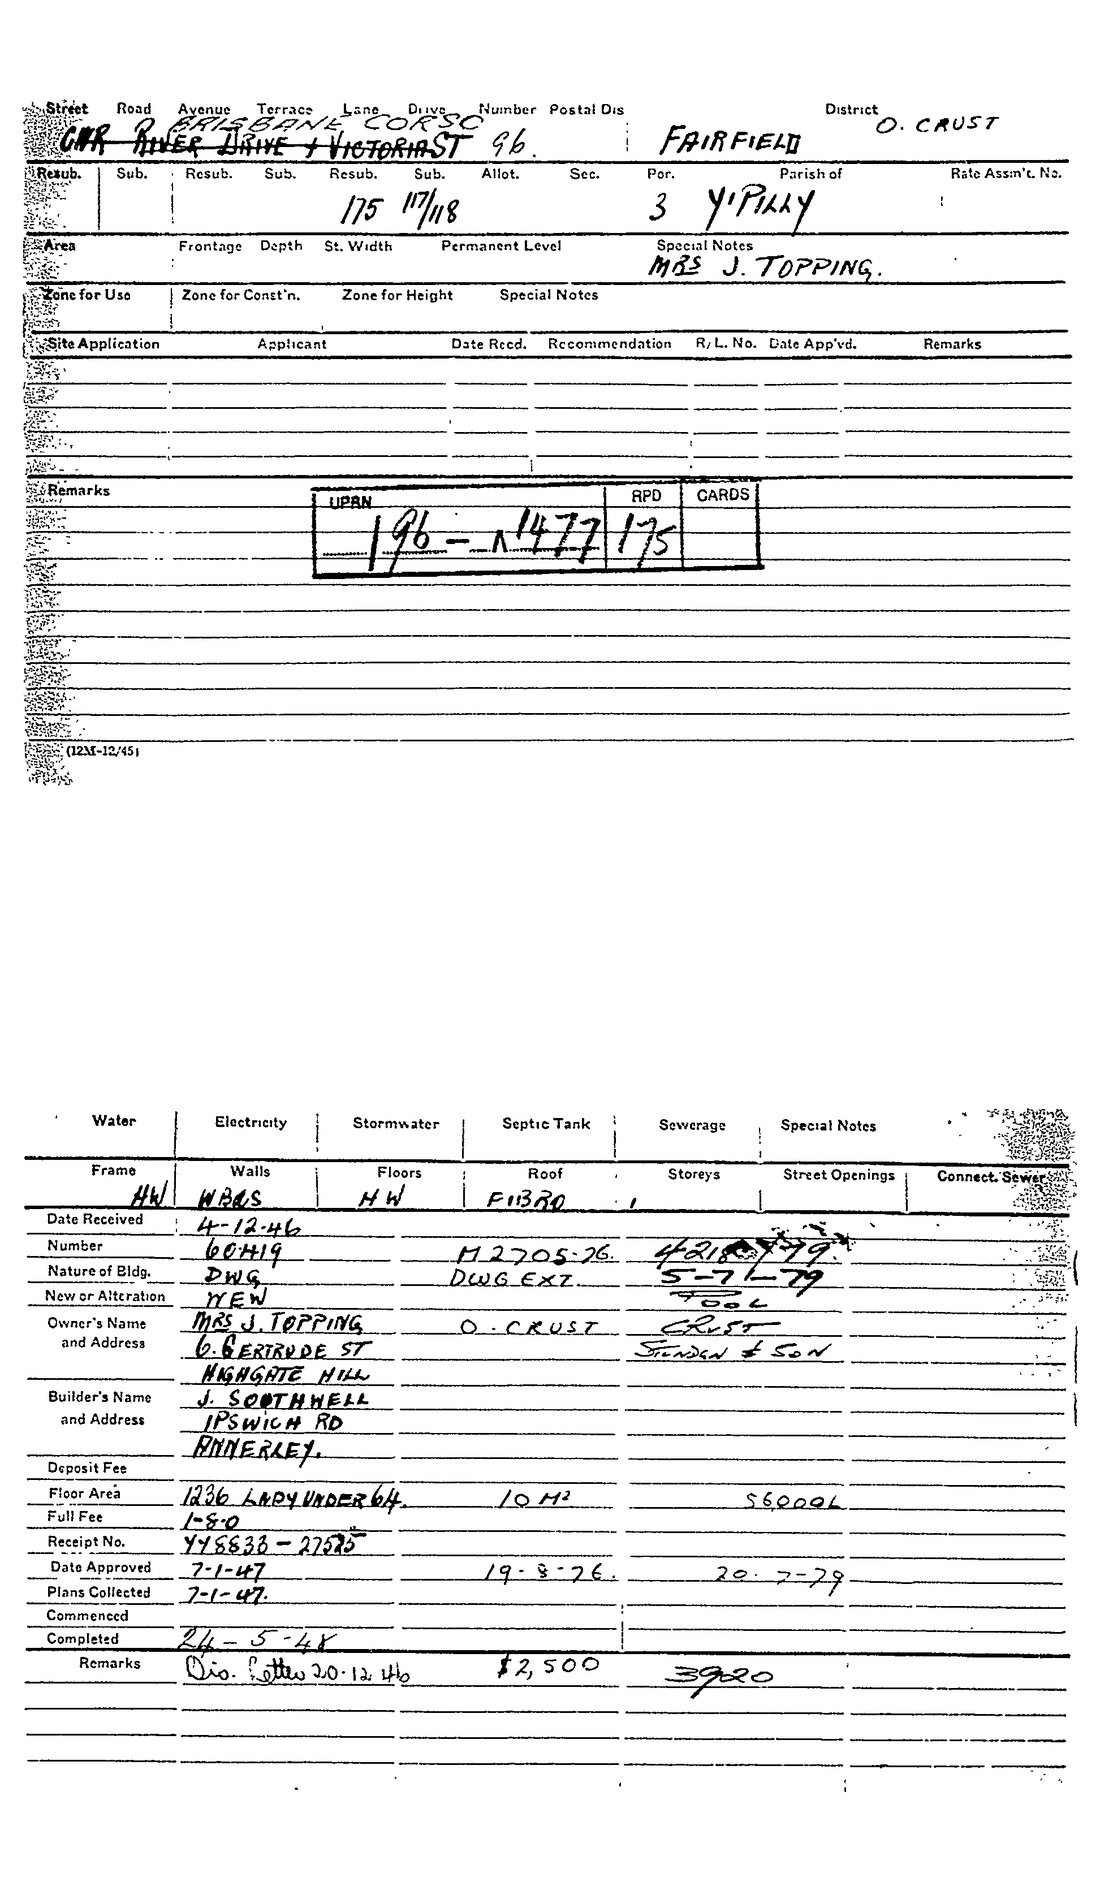 Street Road Avenue Terrace Lane Drive Number Postal Dis District
BRISBANE CORSO O. CRUST
CNR RIVER DRIVE & VICTORIA ST 96. FAIRFIELD
Resub. Sub. Resub. Sub. Resub. Sub. Allot. Sec. Por. Parish of Rate Assm't. No.
175 117/118 3 Y'PILLY
Area Frontage Depth St. Width Permanent Level Special Notes
MRS J. TOPPING.
Zone for Use Zone for Const'n. Zone for Height Special Notes
Site Application Applicant Date Recd. Recommendation R/L. No. Date App'vd. Remarks
Remarks
UPRN RPD CARDS
196 - 1477 175
(12M-12/45)
Water Electricity Stormwater Septic Tank Sewerage Special Notes
Frame Walls Floors Roof Storeys Street Openings Connect. Sewer
HW WBDS HW FIBRO 1
Date Received 4-12-46
Number 60419 M2705-76.
Nature of Bldg. DWG DWG EXT. 5-7-79
New or Alteration NEW POOL
Owner's Name MRS J. TOPPING O. CRUST CRUST
and Address 6. GERTRUDE ST & SON
HIGHGATE HILL
Builder's Name J. SOUTHWELL
and Address IPSWICH RD
ANNERLEY.
Deposit Fee
Floor Area 1236 UNDER 64. 10 M² 56,000L
Full Fee 1-8-0
Receipt No. YY8833-27525
Date Approved 7-1-47 19-8-76. 20-7-79
Plans Collected 7-1-47.
Commenced
Completed 24-5-48
Remarks Dis. Letter 20.12.46 $2,500 3920